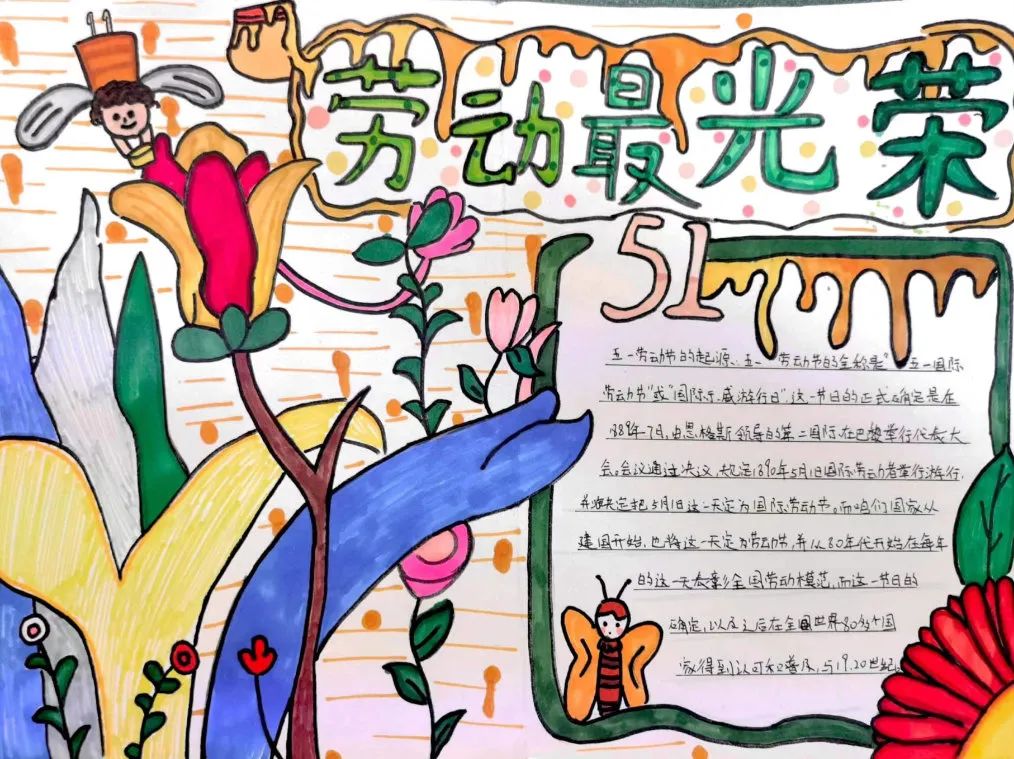 劳动最光荣
51
五一劳动节的起源:五一劳动节的全称是"五一国际
劳动节"或"国际示威游行日"。这一节日的正式确定是在
1889年7月,由恩格斯领导的第二国际在巴黎举行代表大
会。会议通过决议,规定1890年5月1日国际劳动者举行游行,
并决定把5月1日这一天定为国际劳动节。而咱们国家从
建国开始,也将这一天定为劳动节,并从80年代开始在每年
的这一天表彰全国劳动模范,而这一节日的
确定,以及之后在全世界80多个国
家得到认可和普及,与19.20世纪